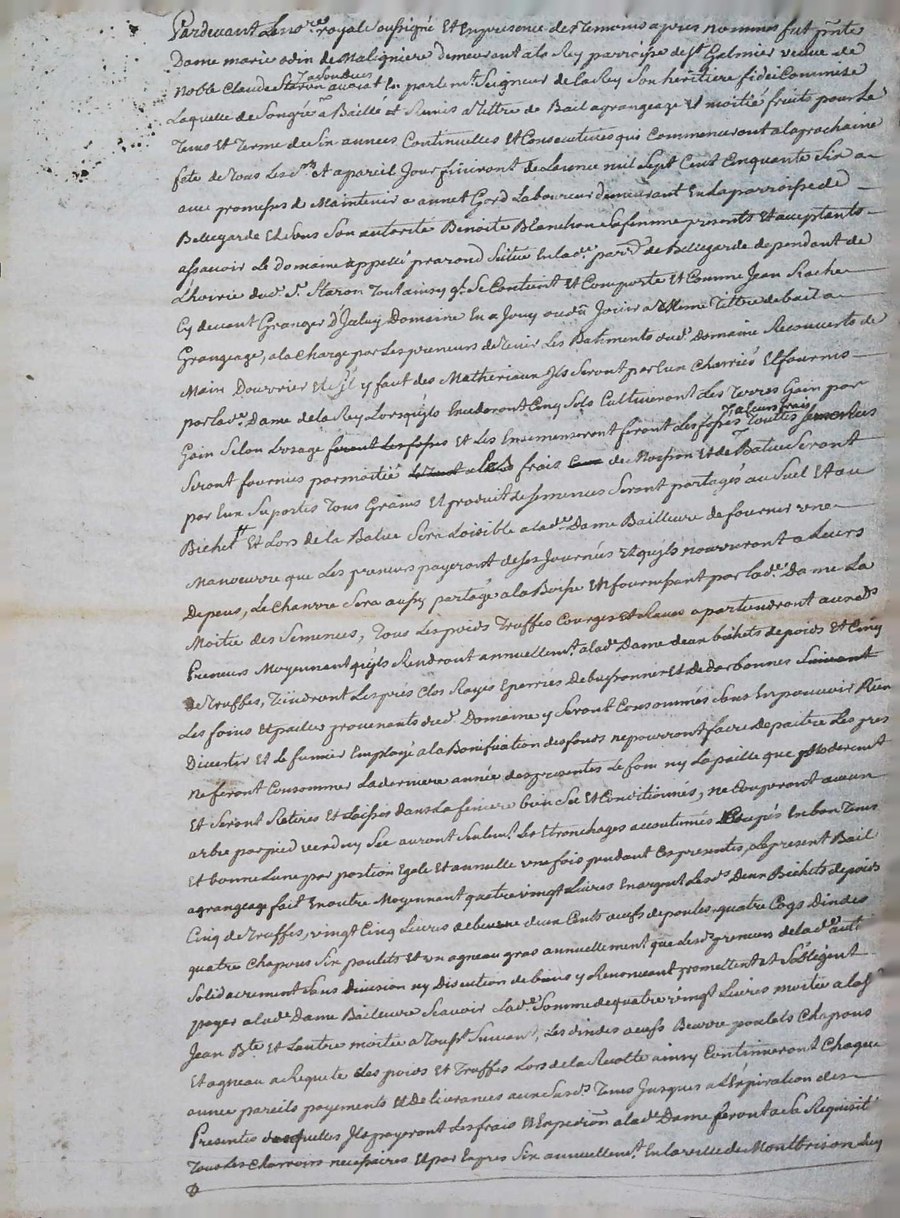 Pardevant Le no.re royal Soussigné Et En presence des Temoins apres nommes fut pnte
Dame marie odin de Maligniere demeurant a la Rey parroisse de St Galmier veuve de
noble Claude Staron avocat En parlemt. Seigneur de la Rey Son heritiere fideicommise
Laquelle de Son gré a Baillé et Remis a tittre de Bail a grangeage Et moitié fruits pour Le
Tems Et Terme de Six années Continuelles Et Consecutives qui Commenceront a la prochaine
fete de Tous Les Sts Et a pareil Jour finiront de L'année mil Sept Cent Cinquante Six a
avec promesses de Maintenir a annet Gord Laboureur demeurant En La parroisse de
Bellegarde Et Sous Son autorité Benoite Blanchon Sa femme presents Et acceptants
assavoir Le domaine appellé prarond Scitué En lad.e parr.e de Bellegarde dependant de
L'hoirie dud. Sr. Staron Tout ainsy q. Se Contient Et Comporte Et Comme Jean
Cy devant Granger D'Jceluy Domaine En a Jouy ou dû Jouir a Meme Tittre de bail a
Grangeage, a la Charge par Les preneurs de Tenir Les Batiments dud. Domaine Recouverts de
Main D'ouvrier Et S'il y faut des Matheriaux Jls Seront par Eux Charriés Et fournis
par lad.e Dame de la Rey Lorsqu'jls Excederont Cinq Sols Cultiveront Les Terres Gain par
Gain Selon L'usage Et Les Ensemenseront feront Les fossés a leurs frais Touttes Semences
Seront fournies par moitié frais de Moisson Et de Batue Seront
par Eux Suportés Tous Grains Et produit de Semences Seront partagés au Suel Et au
Bichet Et Lors de la Batue Sera Loisible a lad.e Dame Bailleure de fournir un
Manoeuvre que Les preneurs payeront de Ses Journées Et qu'jls nourriront a Leurs
Depens, Le Chanvre Sera aussy partagé a la Boisse En fournissant par lad.e Dame La
Moitié des Semences, Tous Les poids Truffes Courges Et Raves apartiendront auxds
Preneurs Moyennant qu'jls Rendront annuellemt. a lad.e Dame deux bichets de poids Et Cinq
de Truffes, Tiendront Les prés Clos Rayes Eparriés Debuyssonnés Et Dedarbonnés
Les foins Et pailles provenants dud. Domaine y Seront Consommés Sans En pouvoir Rien
Divertir Et Le fumier Employé a la Bonification des fonds ne pourront faire Depaitre Les pres
ne feront Consommer La derniere année des presentes Le foin ny La paille que Moderement
Et Seront Retirés Et Laissés dans La feniere bien Sec Et Conditionnés, ne Couperont aucun
arbre par pied verd ny Sec auront Seulemt. Les Etronchages accoutumés Coupés En bon Tems
Et bonne Lune par portion Egale Et annuelle une fois pendant Ces presentes, Le present Bail
a grangeage fait En outre Moyennant quatre vingt Livres En argent Lesds Deux Bichets de poids
Cinq de Truffes, vingt Cinq Livres de beurre deux Cents oeufs de poules quatre Coqs Dindes
quatre Chapons Six poulets Et un agneau gras annuellement que Lesds preneurs de lad.e auté
Solidairement Sans Division ny Discution de biens y Renonceant promettent Et S'obligent
payer a lad.e Dame Bailleure Scavoir Lad.e Somme de quatre vingt Livres moitié a la St
Jean Bte Et L'autre moitié a Tousst Suivant, Les dindes oeufs Beurre poulets Chapons
Et agneau a Requete Les poids Et Truffes Lors de la Recolte ainsy Continueront Chaque
année pareils payements Et Delivrances aux Susds. Tems Jusques a L'Expiration des
Presentes desquelles Jls payeront Les frais Et Expedion a lad.e Dame feront a Sa Requisit.
Tous Les Charrois necessaires Et par Exprès Six annuellemt. En La ville de Montbrison